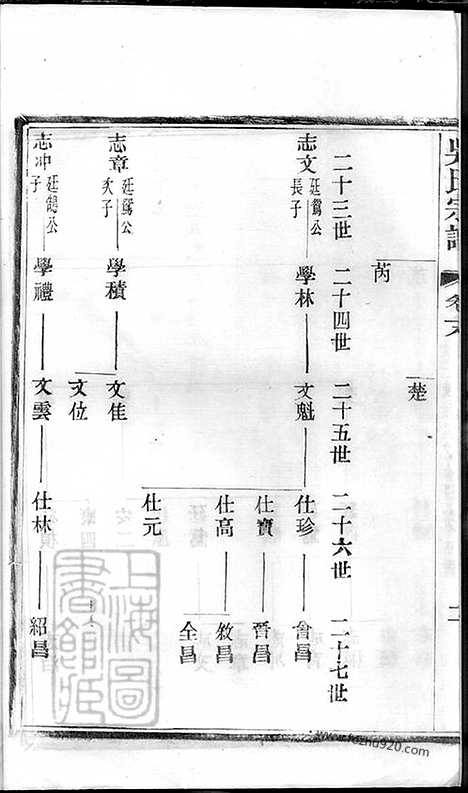 吳氏宗譜 卷六 二
楚
芮
二十三世 二十四世 二十五世 二十六世 二十七世
志文 廷鴛公長子 學林 文魁 仕珍 會昌
仕寶 晉昌
仕高 敘昌
全昌
仕元
志章 廷鴛公次子 學積 文佳
文位
志冲 廷鵠公子 學禮 文雲 仕林 紹昌
上海圖書館藏
www.fozhu920.com